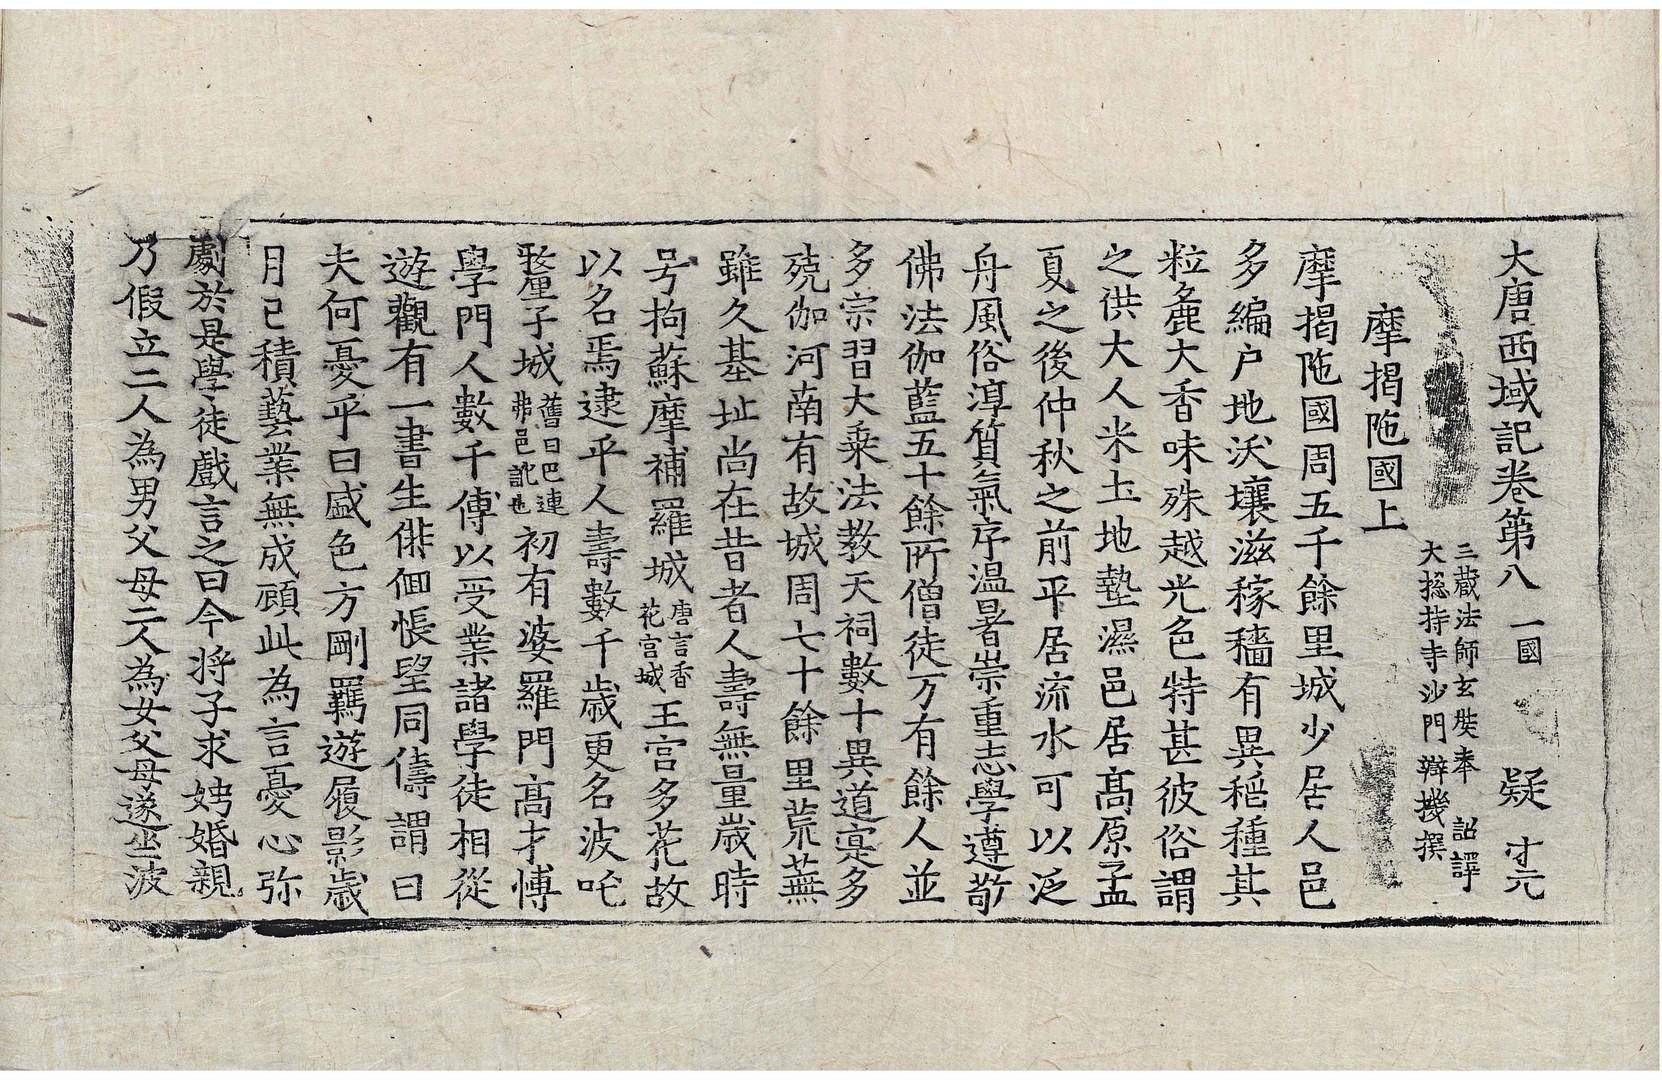 大唐西域記卷第八 一國 疑
三藏法師玄奘奉 詔譯
大捴持寺沙門辯機撰
摩揭陁國上
摩揭陁國周五千餘里城少居人邑
多編户地沃壤滋稼穡有異稻種其
粒麁大香味殊越光色特甚彼俗謂
之供大人米土地墊濕邑居髙原孟
夏之後仲秋之前平居流水可以泛
舟風俗淳質氣序温暑崇重志學遵敬
佛法伽藍五十餘所僧徒万有餘人並
多宗習大乗法教天祠數十異道寔多
殑伽河南有故城周七十餘里荒蕪
雖久基址尚在昔者人壽無量歲時
号拘蘇摩補羅城唐言香花宮城王宮多花故
以名焉逮乎人壽數千歲更名波吒
釐子城舊曰巴連弗邑訛也初有婆羅門髙才博
學門人數千傳以受業諸學徒相從
遊觀有一書生俳佪悵望同儔謂曰
夫何憂乎曰盛色方剛羁遊履影歲
月已積藝業無成顧此為言憂心弥
劇於是學徒戲言之曰今将子求娉婚親
乃假立二人為男父母二人為女父母遂坐波